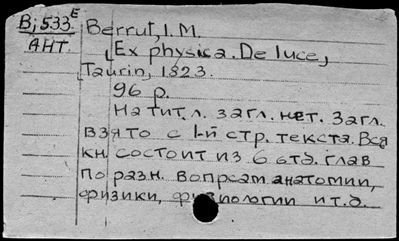 B; 533 E Berrut, I. M.
АНТ. Ex physica. De luce,
Taurin, 1823.
96 р.
На тит. л. загл. нет. Загл.
взято с 1-й стр. текста. Вся
кн. состоит из 6 отд. глав
по разн. вопросам анатомии,
физики, физиологии и т. д.